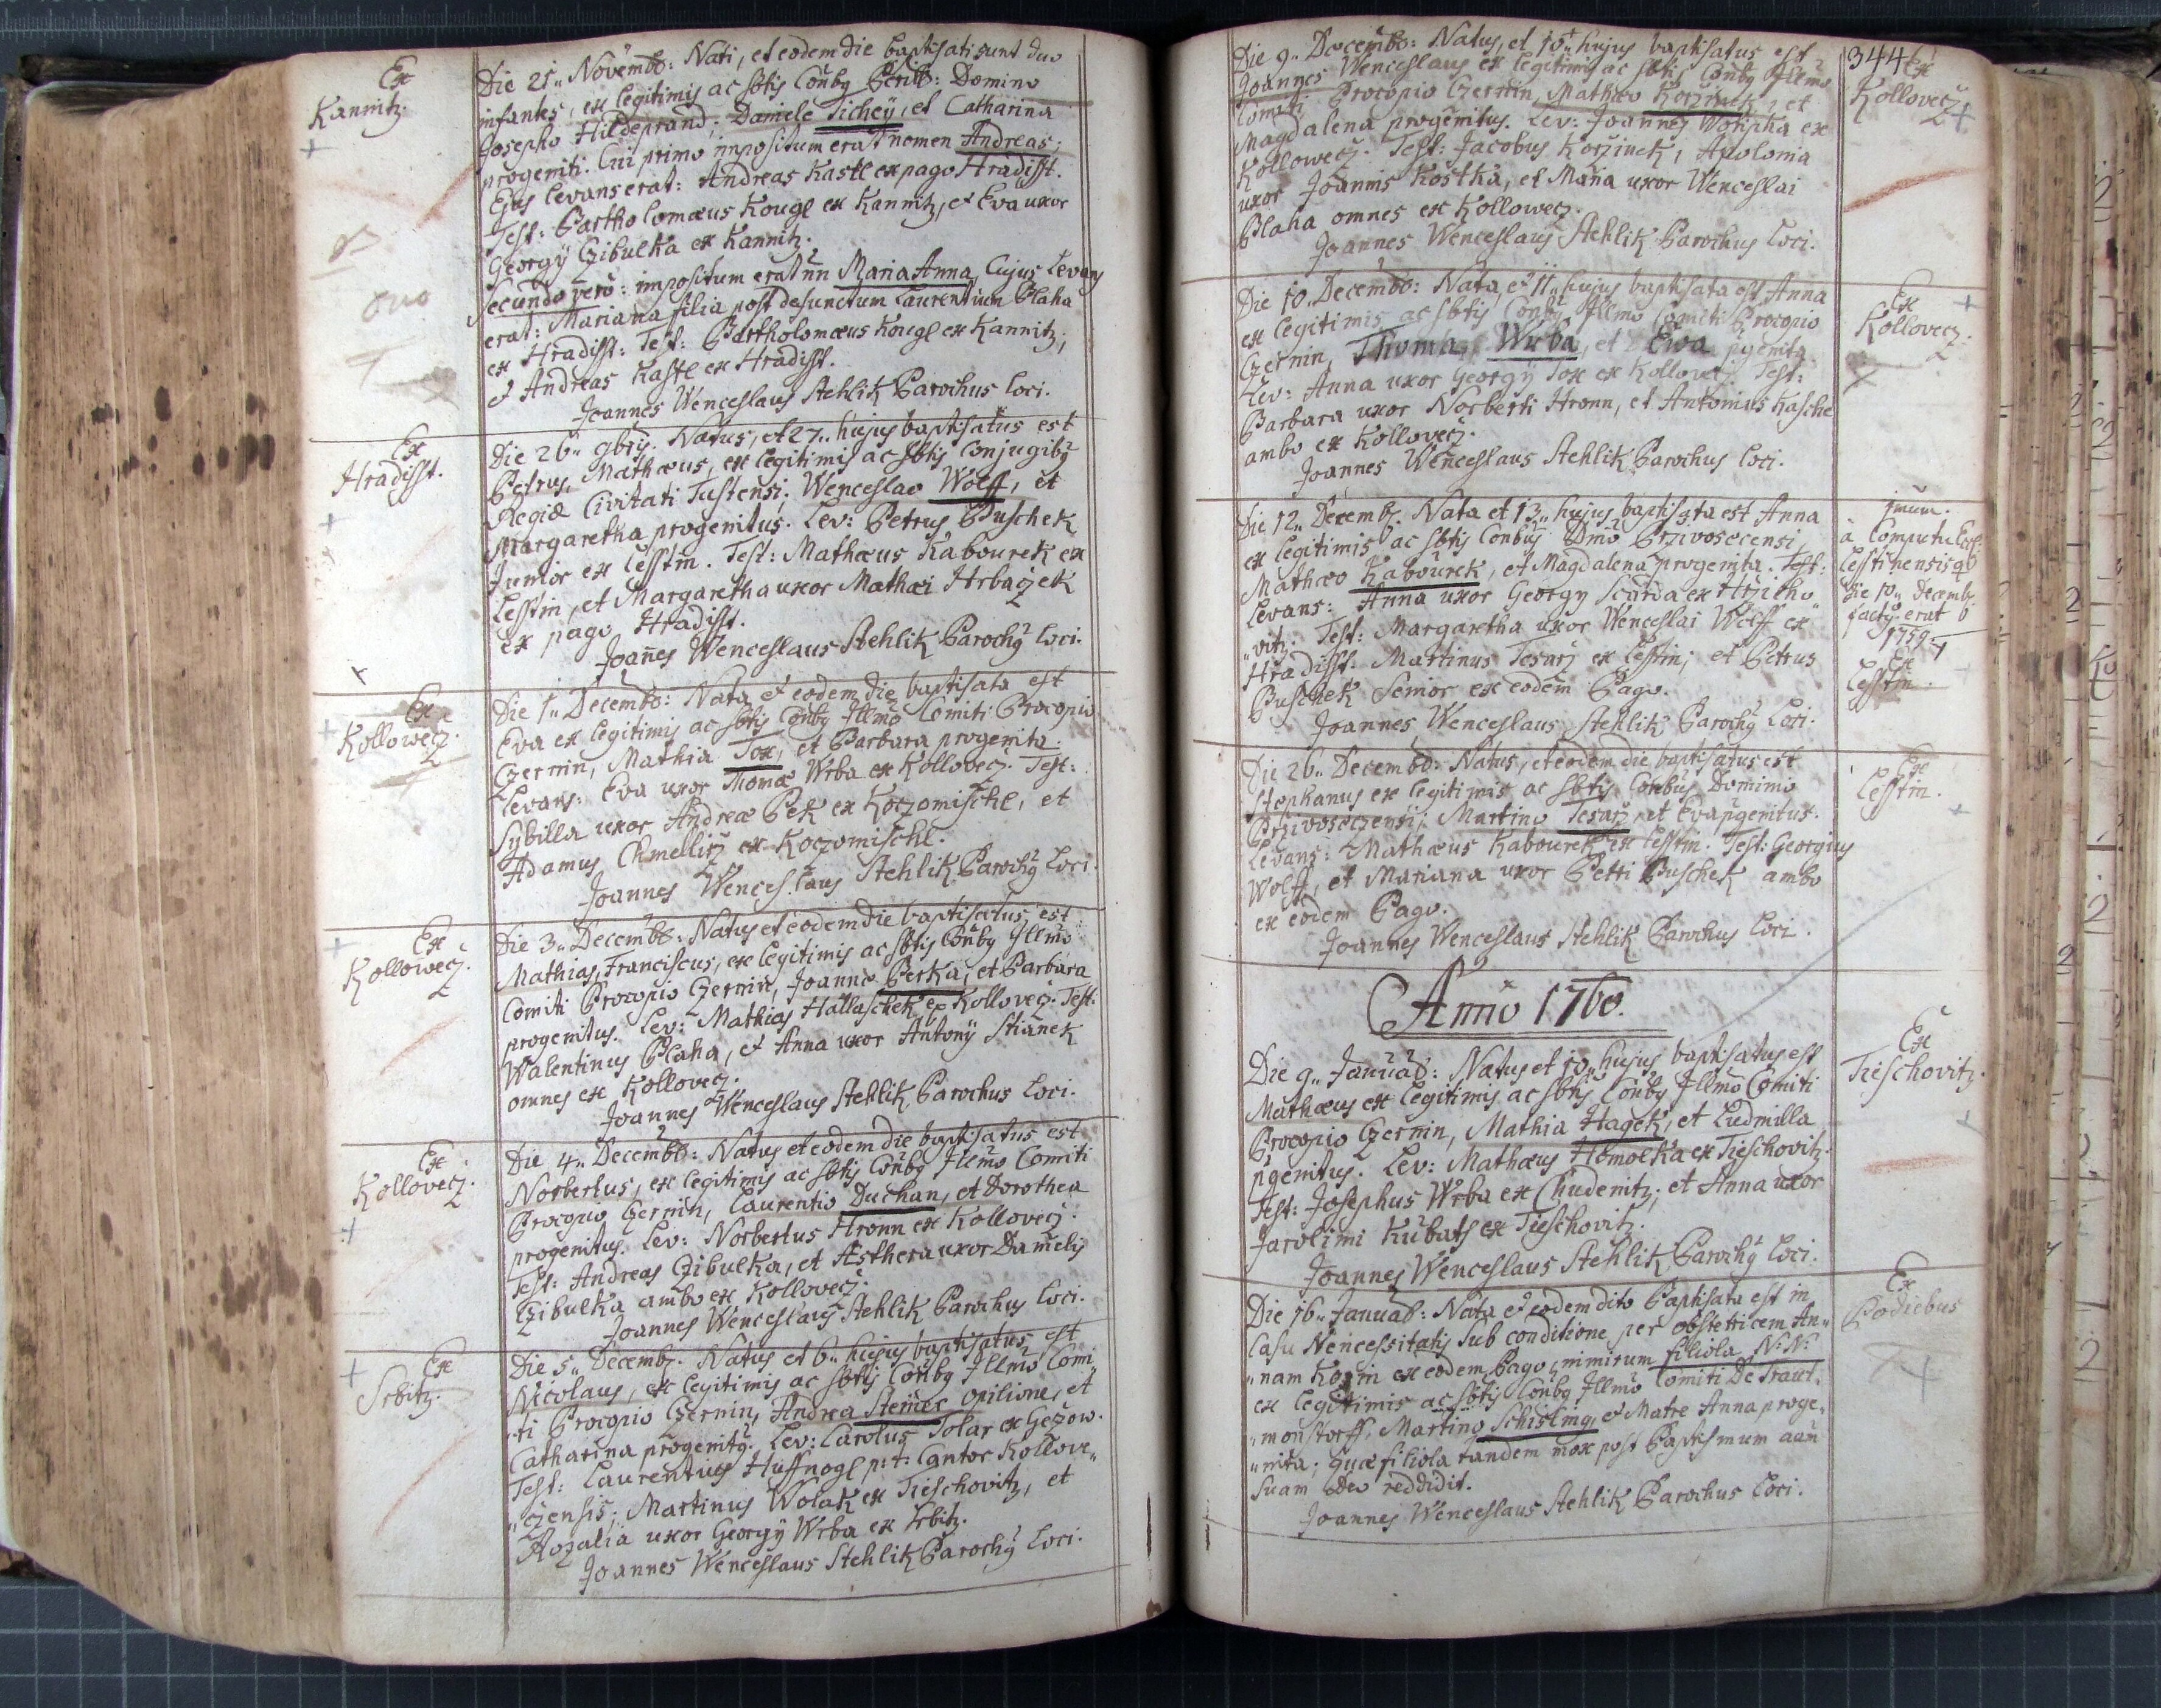 Ex
Kannitz.
Die 21 Novemb: Nati, et eodem die baptisati sunt duo
infantes, ex legitimis ac sbtis Conby Domino
Josepho Hildeprand, Daniele Tichey, et Catharina
progeniti. Cui primo impositum erat nomen Andreas;
Ejus levans erat: Andreas Kastl ex pago Hradisst.
Test: Bartholomæus Kougl ex Kannitz, et Eva uxor
Georgÿ Czibulka ex Kannitz.
Secundo verò: impositum erat nn Maria Anna, Cujus Levans
erat: Mariana filia post defunctum Laurentium Blaha
ex Hradisst: Test: Bartholomæus Kougl ex Kannitz,
et Andreas Kastl ex Hradisst.
Joannes Wenceslaus Stehlik Parochus Loci.
Ex
Hradisst.
Die 26 9bris. Natus, et 27 hujus baptisatus est
Petrus, Mathæus, ex legitimis ac sbtis Conjugibȳ
Regiæ Civitati Tustensi, Wenceslao Wolff, et
Margaretha progenitus. Lev: Petrus Buschek
Junior ex Lesstin. Test: Mathæus Kabourek ex
Lesstin, et Margaretha uxor Mathæi Hrbaczek
ex pago Hradisst.
Joañes Wenceslaus Stehlik Parochȳ Loci.
Ex
Kollowecz.
Die 1 Decemb: Nata et eodem die baptisata est
Eva ex legitimis ac sbtis Conby Illmo Comiti Procopio
Czernin, Mathia Tox, et Barbara progenita.
Levans: Eva uxor Thomæ Wrba ex Kollovecz. Test:
Sybilla uxor Andreæ Bek ex Koczomischl, et
Adamus Chmellirz ex Koczomischl.
Joannes Wenceslaus Stehlik Parochȳ Loci.
Ex
Kollowecz.
Die 3 Decemb: Natus et eodem die baptisatus est
Mathias, Franciscus, ex legitimis ac sbtis Conby Illmo
Comiti Procopio Czernin, Joanne Berka, et Barbara
progenitus. Lev: Mathias Hallaschek ex Kollovecz. Test:
Walentinus Blaha, et Anna uxor Antonÿ Stianek
omnes ex Kollovecz.
Joannes Wenceslaus Stehlik Parochus Loci.
Ex
Kollovecz.
Die 4 Decemb: Natus et eodem die baptisatus est
Norbertus, ex legitimis ac sbtis Conby Illmo Comiti
Procopio Czernin, Laurentio Duchan, et Dorothea
progenitus. Lev: Norbertus Hronn ex Kollovecz.
Test: Andreas Czibulka, et Æsthera uxor Danielis
Czibulka ambo ex Kollovecz.
Joannes Wenceslaus Stehlik Parochus Loci.
Ex
Srbitz.
Die 5 Decemb. Natus et 6 hujus baptisatus est
Nicolaus, ex legitimis ac sbtis Conby Illmo Comi
ti Procopio Czernin, Andrea Steiner opilione, et
Catharina progenitȳ. Lev: Carolus Tolar ex Gezow.
Test: Laurentius Huffnogl p: t: Cantor Kollove
czensis; Martinus Wolak ex Tieschovitz, et
Rozalia uxor Georgÿ Wrba ex Srbitz.
Joannes Wenceslaus Stehlik Parochȳ Loci.
344
Ex
Kollovecz
Die 9 Decemb: Natus, et 10 hujus baptisatus est
Joannes Wenceslaus ex legitimis ac sbtis Conby Illmo
Comiti Procopio Czernin, Mathæo Korzinek, et
Magdalena progenitus. Lev: Joannes Wotipka ex
Kollowecz. Test: Jacobus Korzinek, Apolonia
uxor Joannis Kostka, et Maria uxor Wenceslai
Blaha omnes ex Kollowecz.
Joannes Wenceslaus Stehlik Parochus Loci.
Ex
Kollovecz.
Die 10 Decemb: Nata, et 11 hujus baptisata est Anna
ex legitimis ac sbtis Conby Illmo Comiti Procopio
Czernin, Thoma Wrba, et Ewa pgenita.
Lev: Anna uxor Georgÿ Tox ex Kollovecz Test:
Barbara uxor Norberti Hronn, et Antonius Kasche
ambo ex Kollovecz.
Joannes Wenceslaus Stehlik Parochus Loci.
à Computu
Lesstinensis
die 10 Decemb.
erat
1759.
Ex
Lesstin.
Die 12 Decemb. Nata et 13 hujus baptisata est Anna
ex legitimis ac sbtis Conbus Dmo Przivosccensi
Mathæo Kabourek, et Magdalena progenita. Test:
Levans: Anna uxor Georgÿ Scurda ex Hrzicho
vitz. Test: Margaretha uxor Wenceslai Wolff ex
Hradisst: Martinus Tesarz ex Lesstin; et Petrus
Buschek Senior ex eodem Pago.
Joannes Wenceslaus Stehlik Parochȳ Loci.
Ex
Lesstin.
Die 26 Decemb: Natus, et eodem die baptisatus est
Stephanus ex legitimis ac sbtis Conbus Domino
Przivosczensi, Martino Tesarz, et Eva pgenitus.
Levans: Mathæus Kabourek ex Lesstin. Test: Georgius
Wolff, et Mariana uxor Petri Buschek ambo
ex eodem Pago.
Joannes Wenceslaus Stehlik Parochus Loci.
Anno 1760.
Ex
Tieschovitz.
Die 9 Januar: Natus et 10 hujus baptisatus est
Mathæus ex legitimis ac sbtis Conby Illmo Comiti
Procopio Czernin, Mathia Hagek, et Ludmilla
pgenitus. Lev: Mathæus Homolka ex Tieschovitz.
Test: Josephus Wrba ex Chudenitz; et Anna uxor
Jarolimi Kubats ex Tieschovitz.
Joannes Wenceslaus Stehlik Parochȳ Loci.
Ex
Podiebus
Die 16 Januar: Nata et eodem dito Baptisata est in
Casu Nencessitatis sub conditione per obstetricem An
nam Kozin ex eodem Pago, nimirum filiola N: N:
ex legitimis ac sbtis Conby Illmo Comiti De Traut
monstorff, Martino Schisling, et Matre Anna proge
nita; quæ filiola tandem mox post Baptismum aam
suam Deo reddidit.
Joannes Wenceslaus Stehlik Parochus Loci.